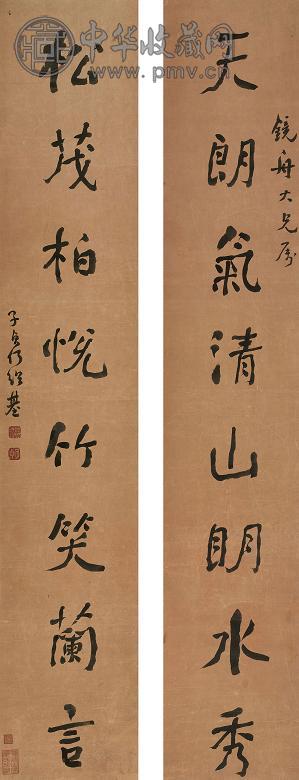 中华收藏网
www.pmv.cn
鏡舟大兄屬
天朗氣清山明水秀
松茂柏悅竹笑蘭言
子貞何紹基